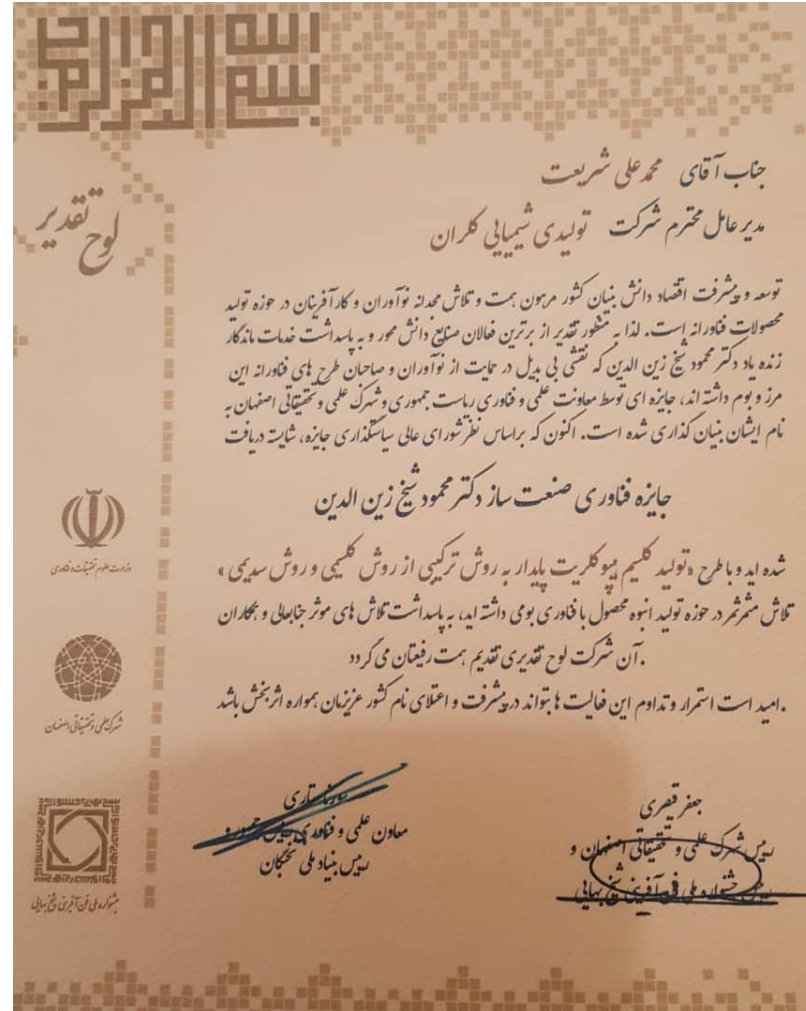 بسم الله الرحمن الرحیم
لوح تقدیر
جناب آقای محمد علی شریعت
مدیر عامل محترم شرکت تولیدی شیمیایی کلران
توسعه و پیشرفت اقتصاد دانش بنیان کشور مرهون همت و تلاش مجدانه نوآوران و کارآفرینان در حوزه تولید
محصولات فناورانه است. لذا به منظور تقدیر از برترین فعالان صنایع دانش محور و به پاسداشت خدمات ماندگار
زنده یاد دکتر محمود شیخ زین الدین که نقشی بی بدیل در حمایت از نوآوران و صاحبان طرح های فناورانه این
مرز و بوم داشته اند، جایزه ای توسط معاونت علمی و فناوری ریاست جمهوری و شهرک علمی و تحقیقاتی اصفهان به
نام ایشان بنیان گذاری شده است. اکنون که براساس نظر شورای عالی سیاستگذاری جایزه، شایسته دریافت
جایزه فناوری صنعت ساز دکتر محمود شیخ زین الدین
شده اید و با طرح «تولید کلسیم هیپوکلریت پایدار به روش ترکیبی از روش کلسیمی و روش سدیمی»
تلاش مثمرثمر در حوزه تولید انبوه محصول با فناوری بومی داشته اید، به پاسداشت تلاش های موثر جنابعالی و همکاران
آن شرکت لوح تقدیری تقدیم همت رفیعتان می گردد.
امید است استمرار و تداوم این فعالیت ها بتواند در پیشرفت و اعتلای نام کشور عزیزمان همواره اثربخش باشد.
جعفر قیصری
رییس شهرک علمی و تحقیقاتی اصفهان و
رییس جشنواره ملی فن آفرینی شیخ بهایی
سورنا ستاری
معاون علمی و فناوری رییس جمهور
رییس بنیاد ملی نخبگان
وزارت علوم تحقیقات و فناوری
شهرک علمی و تحقیقاتی اصفهان
جشنواره ملی فن آفرینی شیخ بهایی